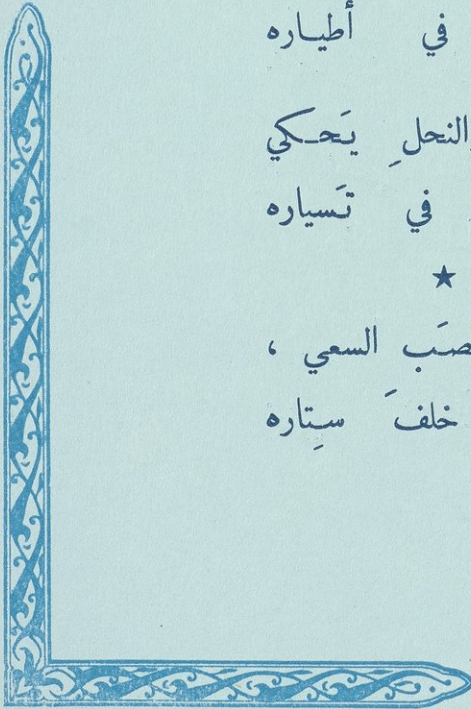 في أطياره
النحلِ يَحكي
في تَسياره
★
صَب السعي ،
خلفَ سِتاره